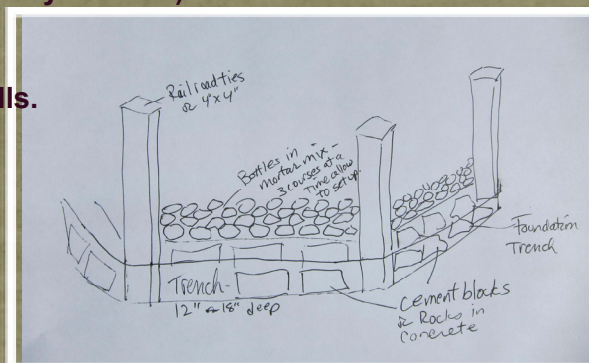 lls.
Railroad ties
or 4"x4"
Bottles in
mortar mix -
3 courses at a
time allow
to set up.
Foundation
Trench
Trench-
12" or 18" deep
Cement blocks
or Rocks in
Concrete